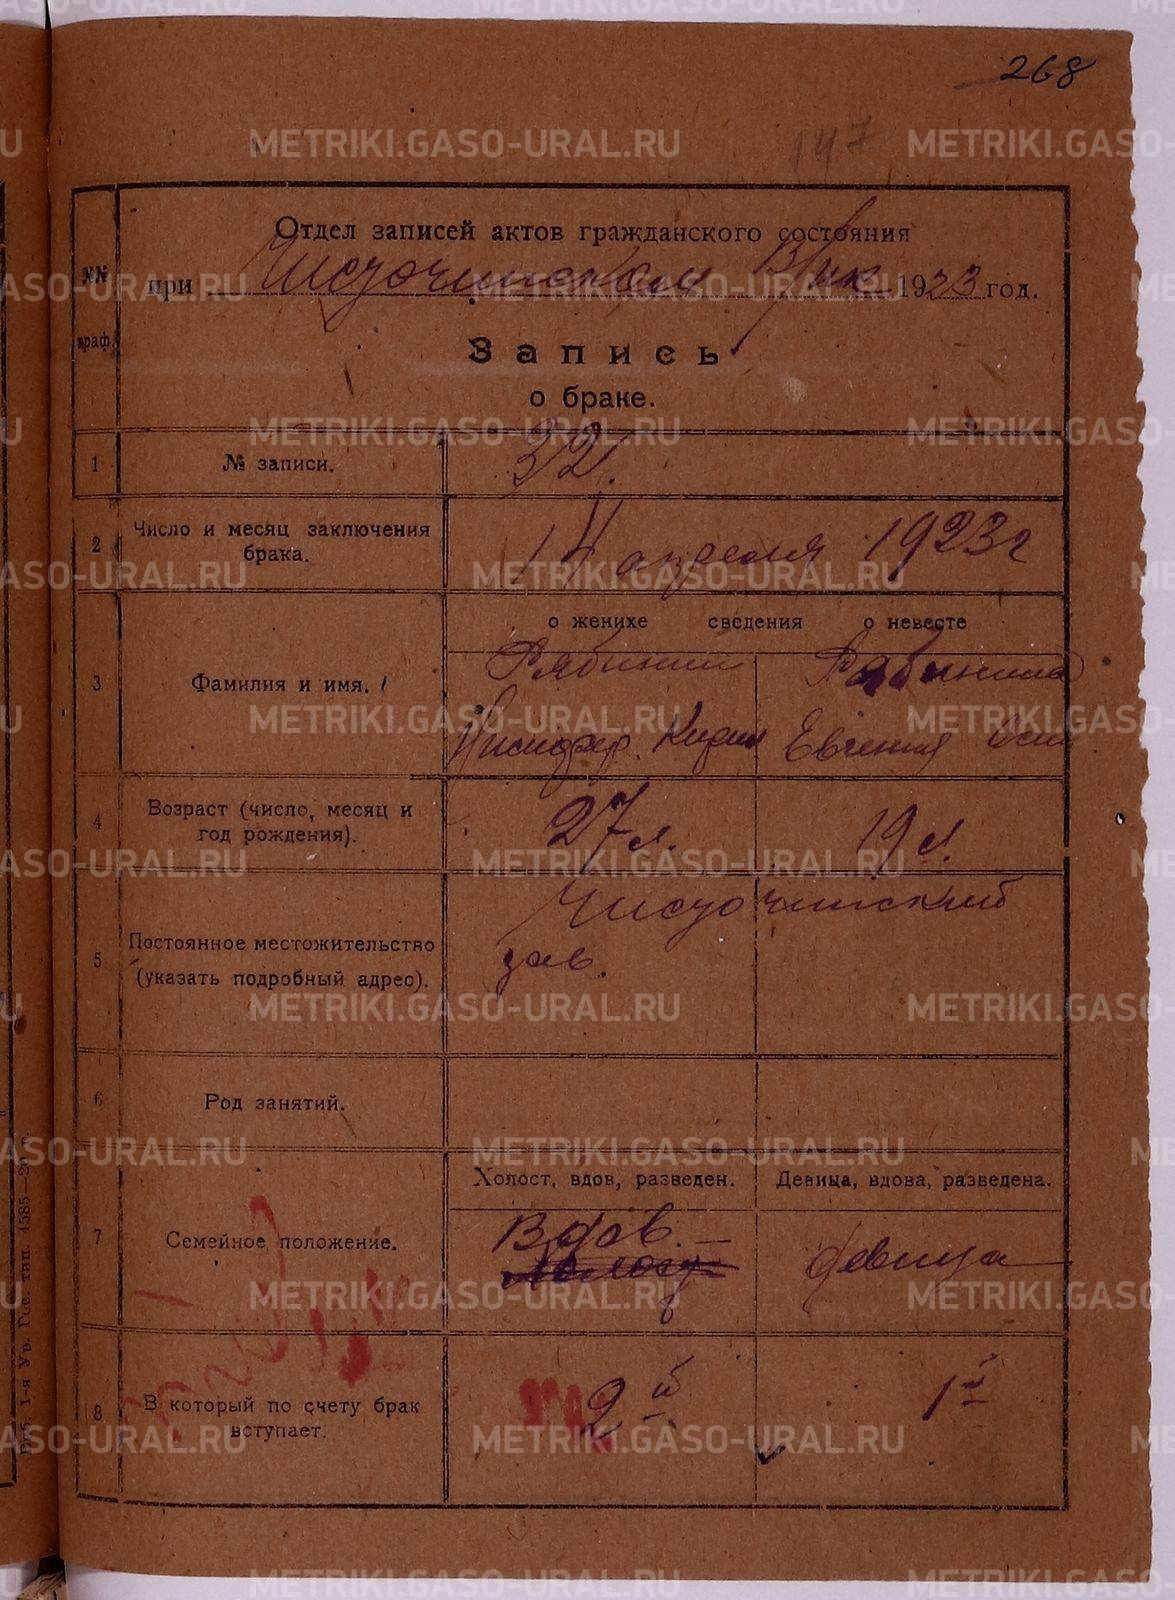 268
147
Отдел записей актов гражданского состояния
№№ граф.
при Висимочинском Врик 1923 год.
Запись
о браке.
1 № записи. 32.
2 Число и месяц заключения брака. 14 апреля 1923 г
о женихе сведения о невесте
3 Фамилия и имя.
Рябинин Рябинина
Никифор Кирил Евгения Осип
4 Возраст (число, месяц и год рождения). 27 л. 19 л.
5 Постоянное местожительство (указать подробный адрес).
зав.
6 Род занятий.
Холост, вдов, разведен. Девица, вдова, разведена.
7 Семейное положение.
Вдов. девица
Холост
8 В который по счету брак вступает. 2й 1й
Екб. 1-я Ур. Гос. тип. 4585—20 г.
METRIKI.GASO-URAL.RU